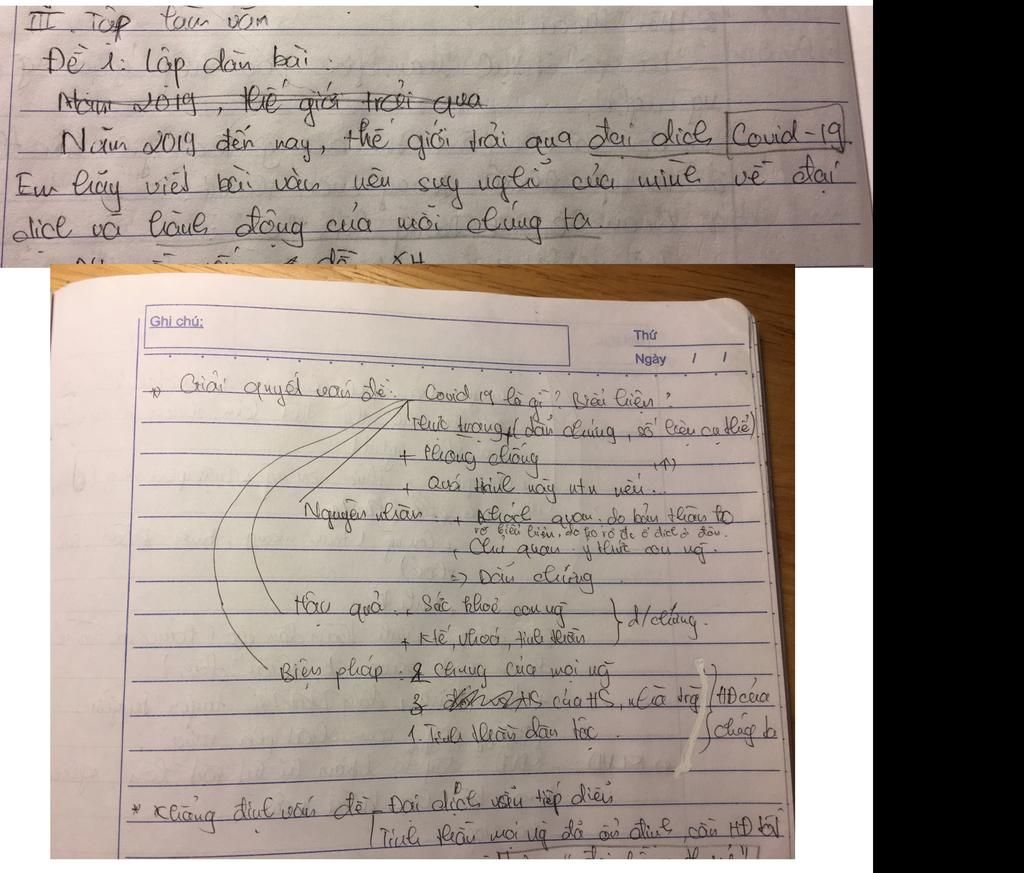 III. Tập làm văn
Đề 1: Lập dàn bài:
Năm 2019, thế giới trải qua
Năm 2019 đến nay, thế giới trải qua đại dịch Covid-19.
Em hãy viết bài văn nêu suy nghĩ của mình về đại
dịch và hành động của mỗi chúng ta.
Ghi chú:
Thứ
Ngày / /
* Giải quyết vấn đề: Covid 19 là gì? Biểu hiện?
Thực trạng (dẫn chứng, số liệu cụ thể)
+ Phòng chống
+ Quá trình này ntn nếu...
Nguyên nhân + Khách quan: do bản thân ko
rõ biểu hiện, do ko rõ đc ổ dịch ở đâu.
+ Chủ quan: ý thức con ng
=> Dẫn chứng
Hậu quả + Sức khoẻ con ng
+ Ktế, vhoá, tinh thần } d/chứng.
Biện pháp: 2 chung của mọi ng
3 của HS, nhà trg HĐ của
1. Tinh thần dân tộc. chúng ta
* Khẳng định vấn đề - Đại dịch vẫn tiếp diễn
Tinh thần mọi ng đã ổn định, cần HĐ tốt